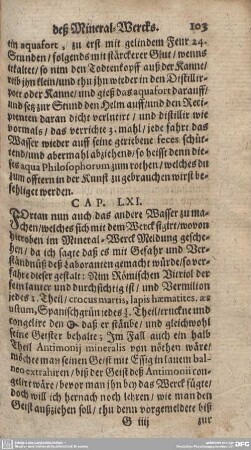 deß Mineral-Wercks. 103
ein aquafort, zu erst mit gelindem Feur 24.
Stunden / folgends mit stärckerer Glut / wenns
erkaltet / so nim den Todtenkopff auß der Kanne /
reib jhn klein / und thu jhn wieder in den Distillir-
topff oder Kanne / und gieß das aquafort darauff /
und setz zur Stund den Helm auff / und den Reci-
pienten daran dicht verlutirt / und distillir wie
vormals / das verrichte 3. mahl / jede fahrt das
Wasser wieder auff seine geriebene feces schüt-
tend / und abermahl abziehend / so heisst denn die-
ses aqua Philosophorum zum rothen / welches du
zum öfftern in der Kunst zu gebrauchen wirst be-
fehliget werden.
CAP. LXI.
FOrtan nun auch das andere Wasser zu ma-
chen / welches sich mit dem Werck figirt / wovon
hieroben im Mineral-Werck Meldung gesche-
hen / da ich sagte daß es mit Gefahr und Ver-
ständnüß deß Laboranten gemacht würde / so ver-
fahre dieser gestalt: Nim Römischen Vitriol der
fein lauter und durchsichtig ist / und Vermilion
jedes 1. Theil / crocus martis, lapis hæmatites, æs
ustum, Spanischgrün jedes Theil / truckne und
congelire den daß er stäube / und gleichwohl
seine Geister behalte; Im Fall auch ein halb
Theil Antimonij mineralis von nöhten wäre /
möchte man seinen Geist mit Essig in lauem bal-
neo extrahiren / biß der Geist deß Antimonii con-
gelirt wäre / bevor man jhn bey das Werck fügte /
doch will ich hernach noch lehren / wie man den
Geist außziehen soll / thu denn vorgemeldete biß
G iiij zur